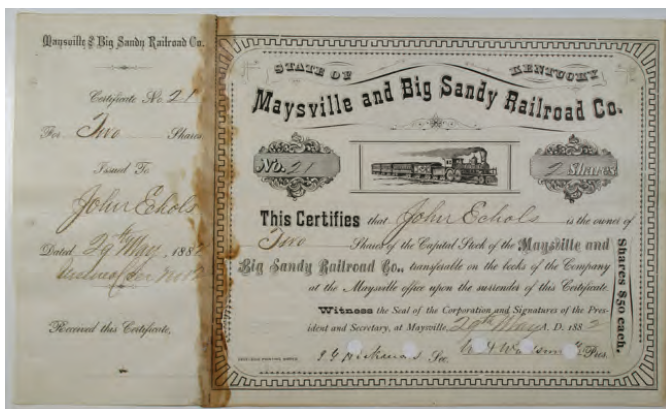 Maysville & Big Sandy Railroad Co.
Certificate No 21
For Two Shares
Issued To
John Echols
Dated 29th May, 1882
Received this Certificate,
STATE OF KENTUCKY
Maysville and Big Sandy Railroad Co.
No. 21
2 Shares
This Certifies that John Echols is the owner of
Two Shares of the Capital Stock of the Maysville and
Big Sandy Railroad Co., transferable on the books of the Company
at the Maysville office upon the surrender of this Certificate.
Witness the Seal of the Corporation and Signatures of the Pres-
ident and Secretary, at Maysville, 29th May A. D. 1882
Sec. Pres.
Shares $50 each.